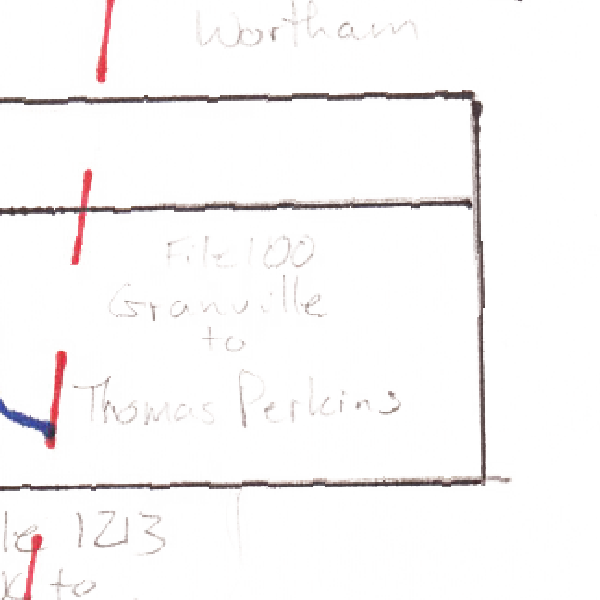 Wortham
File 100
Granville
to
Thomas Perkins
1213
to